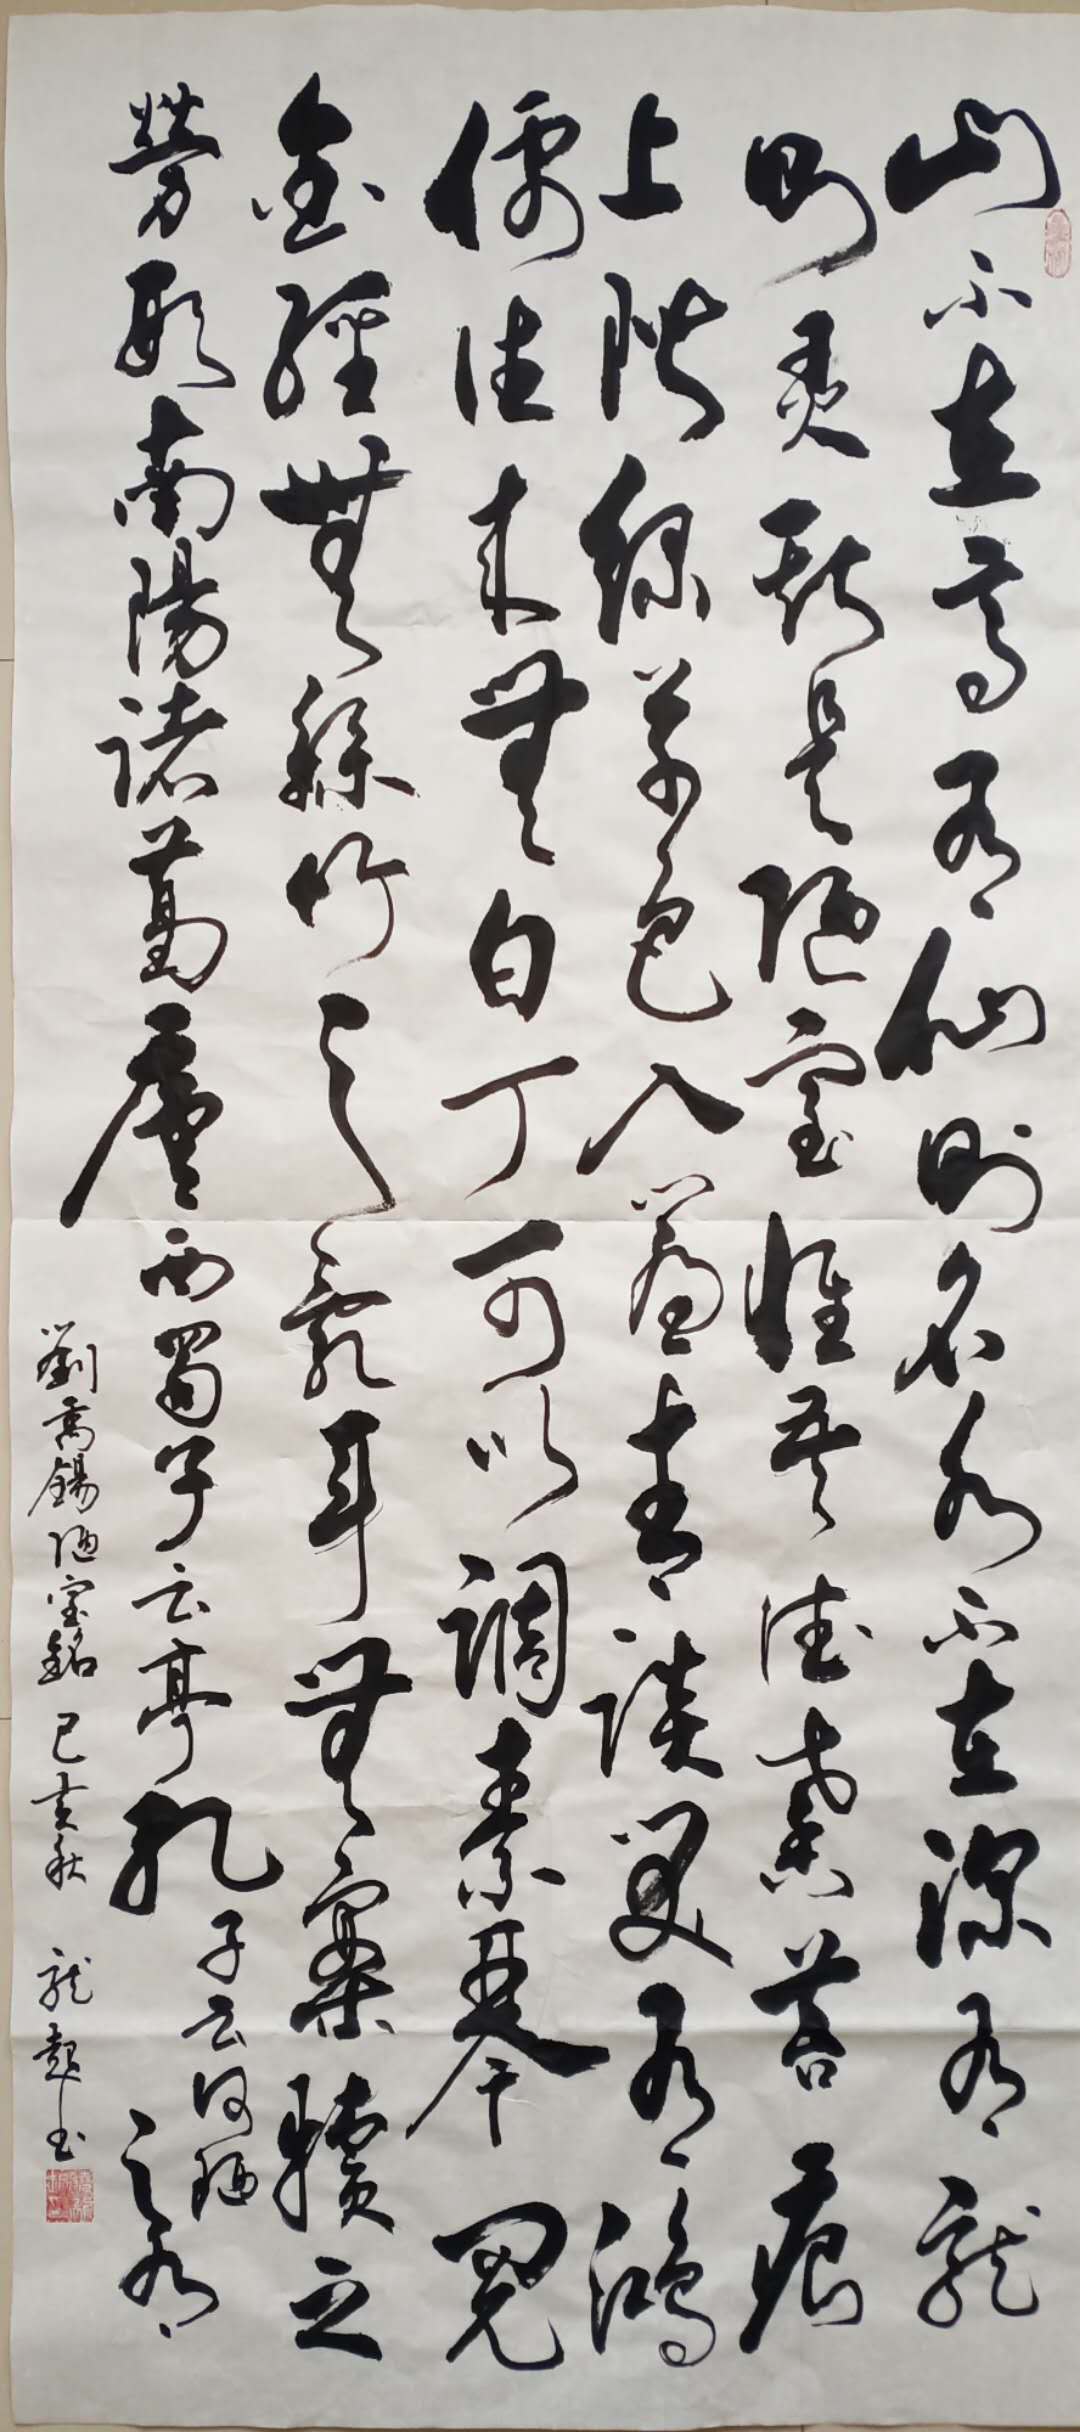 山不在高有仙則名水不在深有龍
則灵斯是陋室惟吾德馨苔痕
上階綠草色入簾青談笑有鴻
儒往来無白丁可以調素琴閱
金經無絲竹之亂耳無案牘之
勞形南陽諸葛廬西蜀子云亭孔子云何陋之有
劉禹錫陋室銘 己亥秋 龍起书